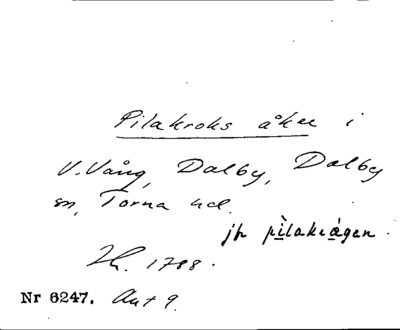 Pilakroks åker i
V. Vång, Dalby, Dalby
sn, Torna hd.
jfr pilakrågen.
1788.
Nr 6247. Akt 9.